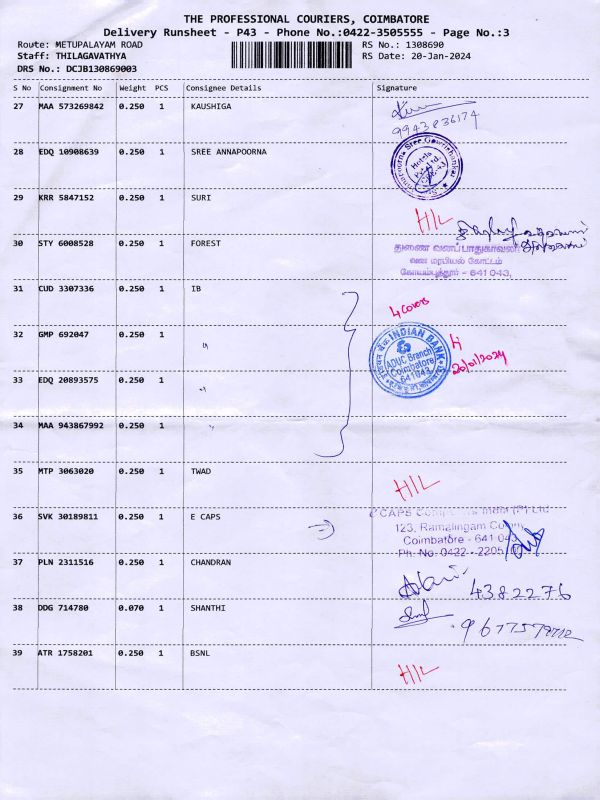 THE PROFESSIONAL COURIERS, COIMBATORE
Delivery Runsheet - P43 - Phone No.:0422-3505555 - Page No.:3
Route: METUPALAYAM ROAD RS No.: 1308690
Staff: THILAGAVATHYA RS Date: 20-Jan-2024
DRS No.: DCJB130869003
S No Consignment No Weight PCS Consignee Details Signature
27 MAA 573269842 0.250 1 KAUSHIGA
9943836174
28 EDQ 10908639 0.250 1 SREE ANNAPOORNA
29 KRR 5847152 0.250 1 SURI
H/L
30 STY 6008528 0.250 1 FOREST
துணை வனப்பாதுகாவலர்
வன மரபியல் கோட்டம்
கோயம்புத்தூர் - 641 043.
31 CUD 3307336 0.250 1 IB
4 Covers
32 GMP 692047 0.250 1 "
INDIAN BANK
ADUC Branch
Coimbatore
641043
20/01/2024
33 EDQ 20893575 0.250 1 "
34 MAA 943867992 0.250 1 "
35 MTP 3063020 0.250 1 TWAD
H/L
36 SVK 30189811 0.250 1 E CAPS
123, Ramalingam
Coimbatore - 641 043
Ph. No. 0422 - 2205
37 PLN 2311516 0.250 1 CHANDRAN
4382276
38 DDG 714780 0.070 1 SHANTHI
39 ATR 1758201 0.250 1 BSNL
H/L